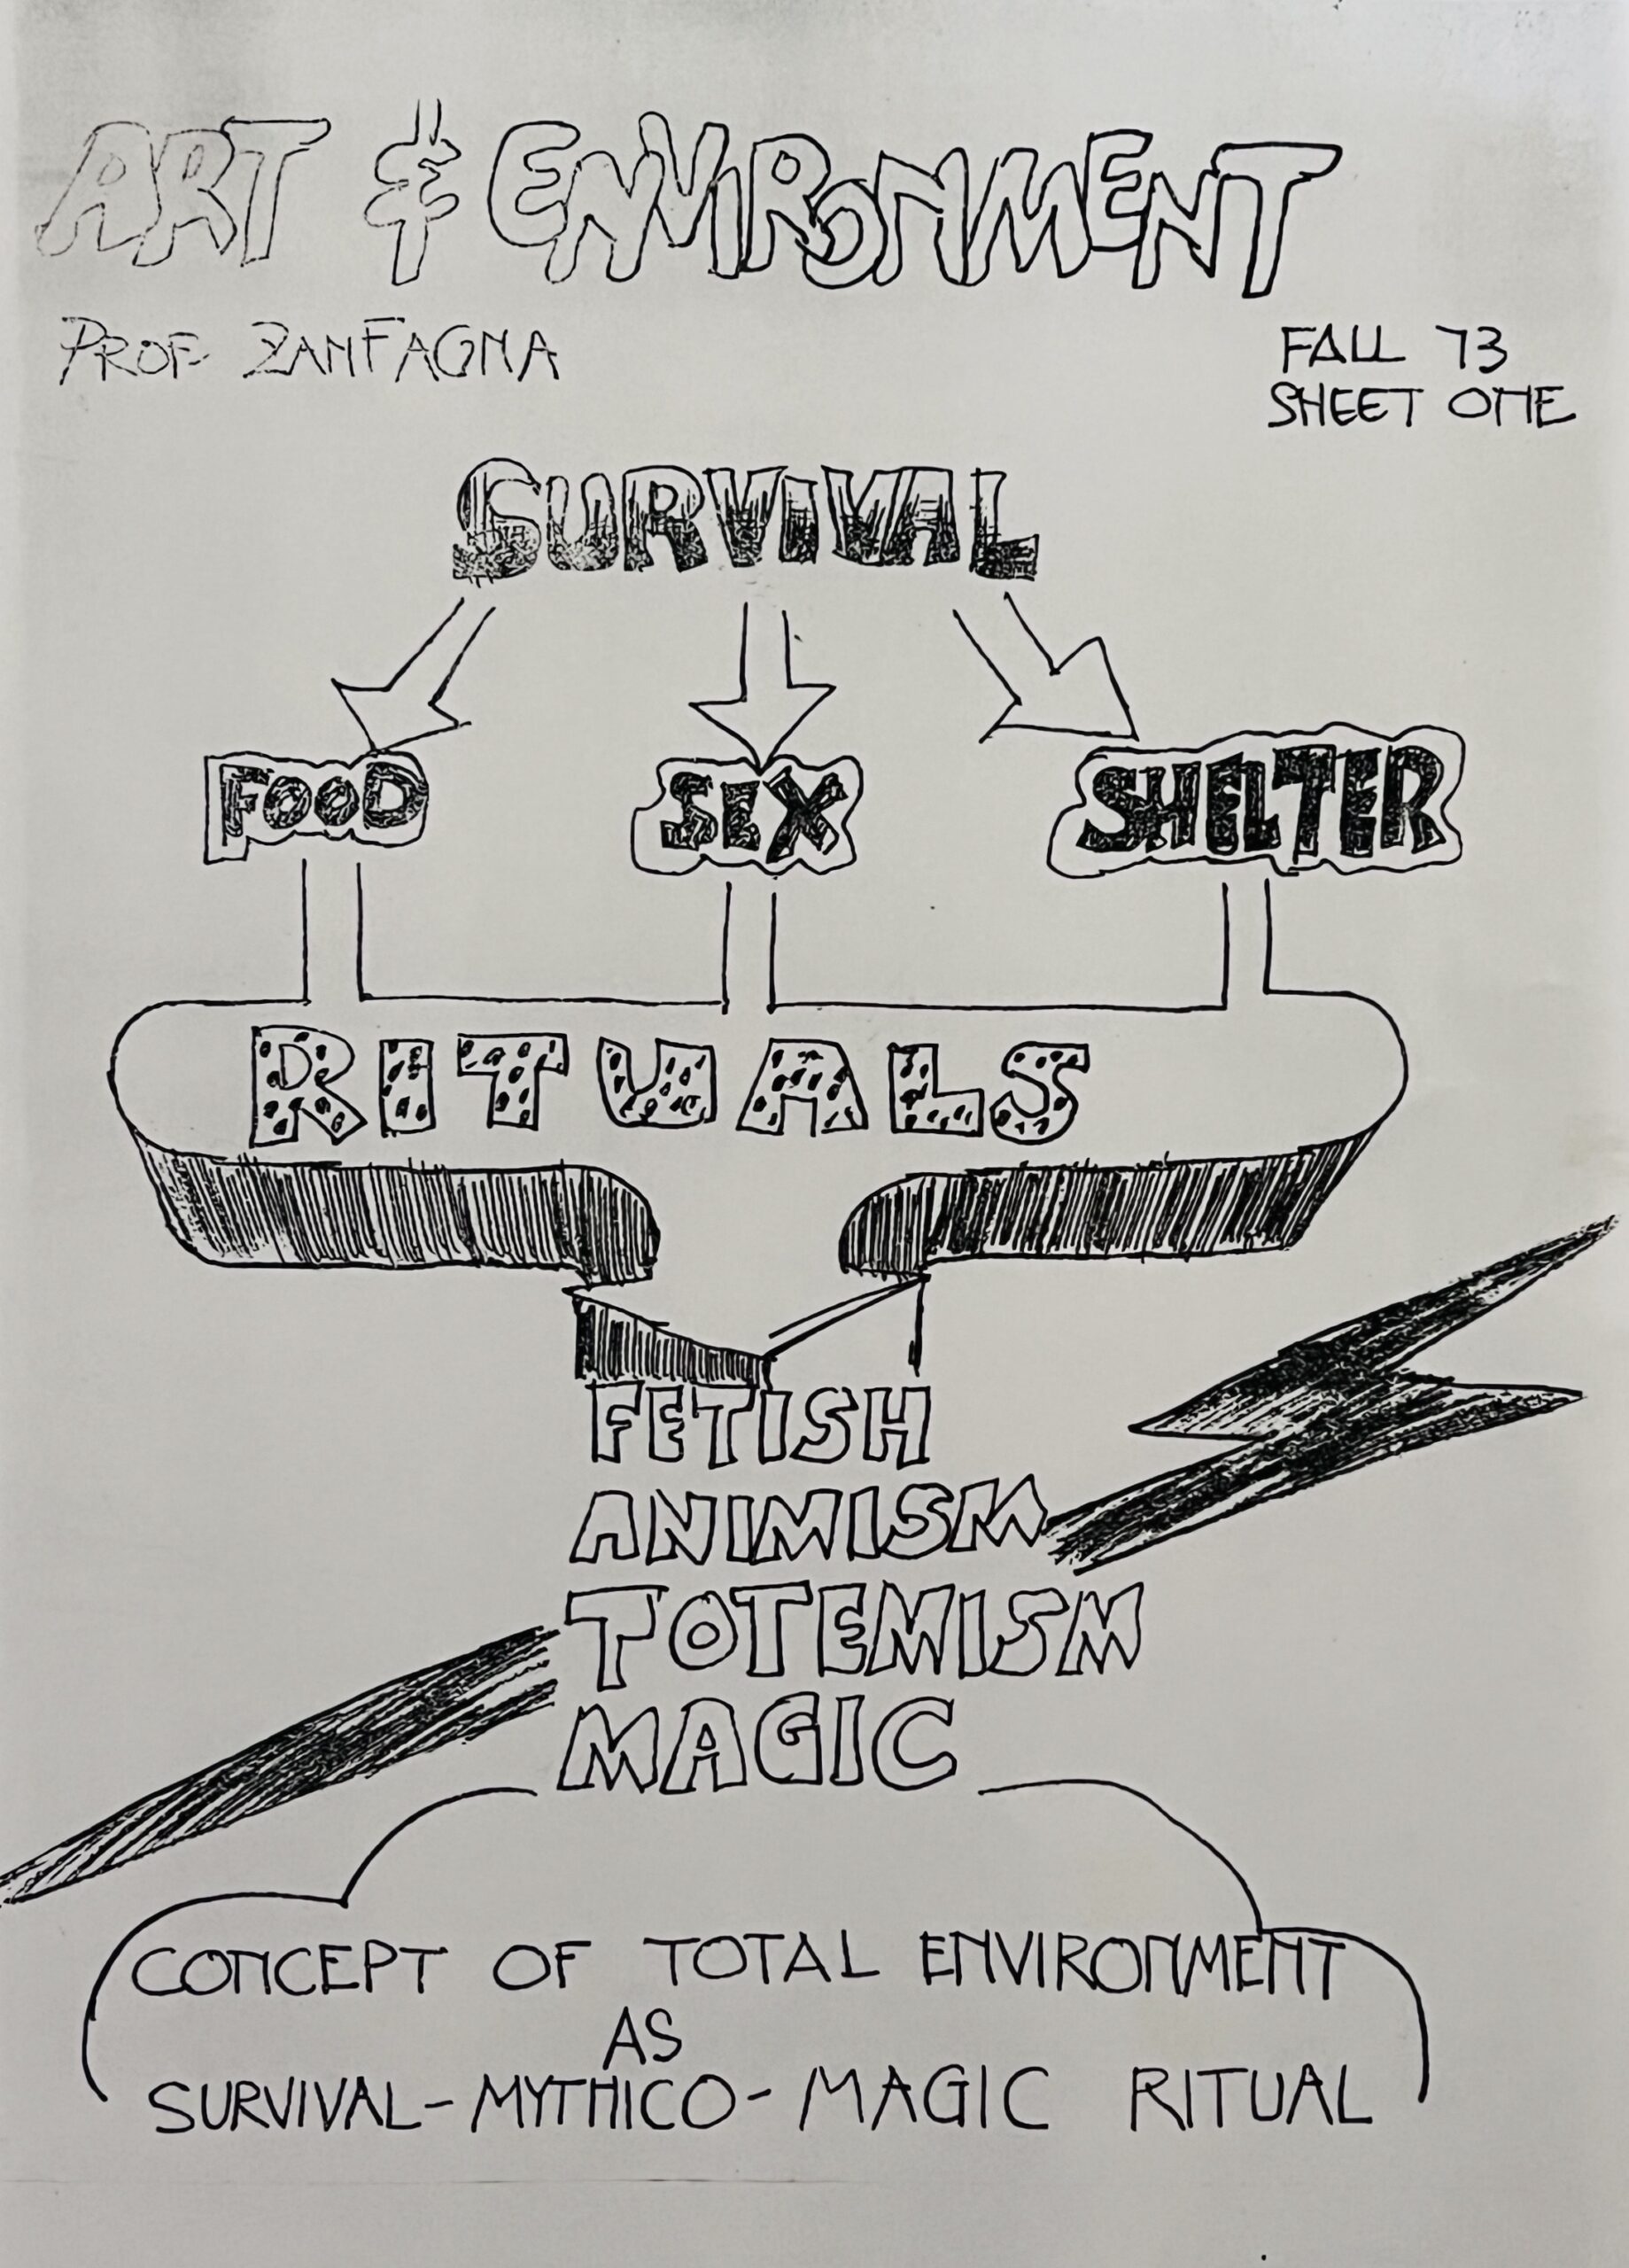 ART & ENVIRONMENT
PROF ZANFAGNA
FALL 73
SHEET ONE
SURVIVAL
FOOD SEX SHELTER
RITUALS
FETISH
ANIMISM
TOTEMISM
MAGIC
CONCEPT OF TOTAL ENVIRONMENT
AS
SURVIVAL-MYTHICO-MAGIC RITUAL